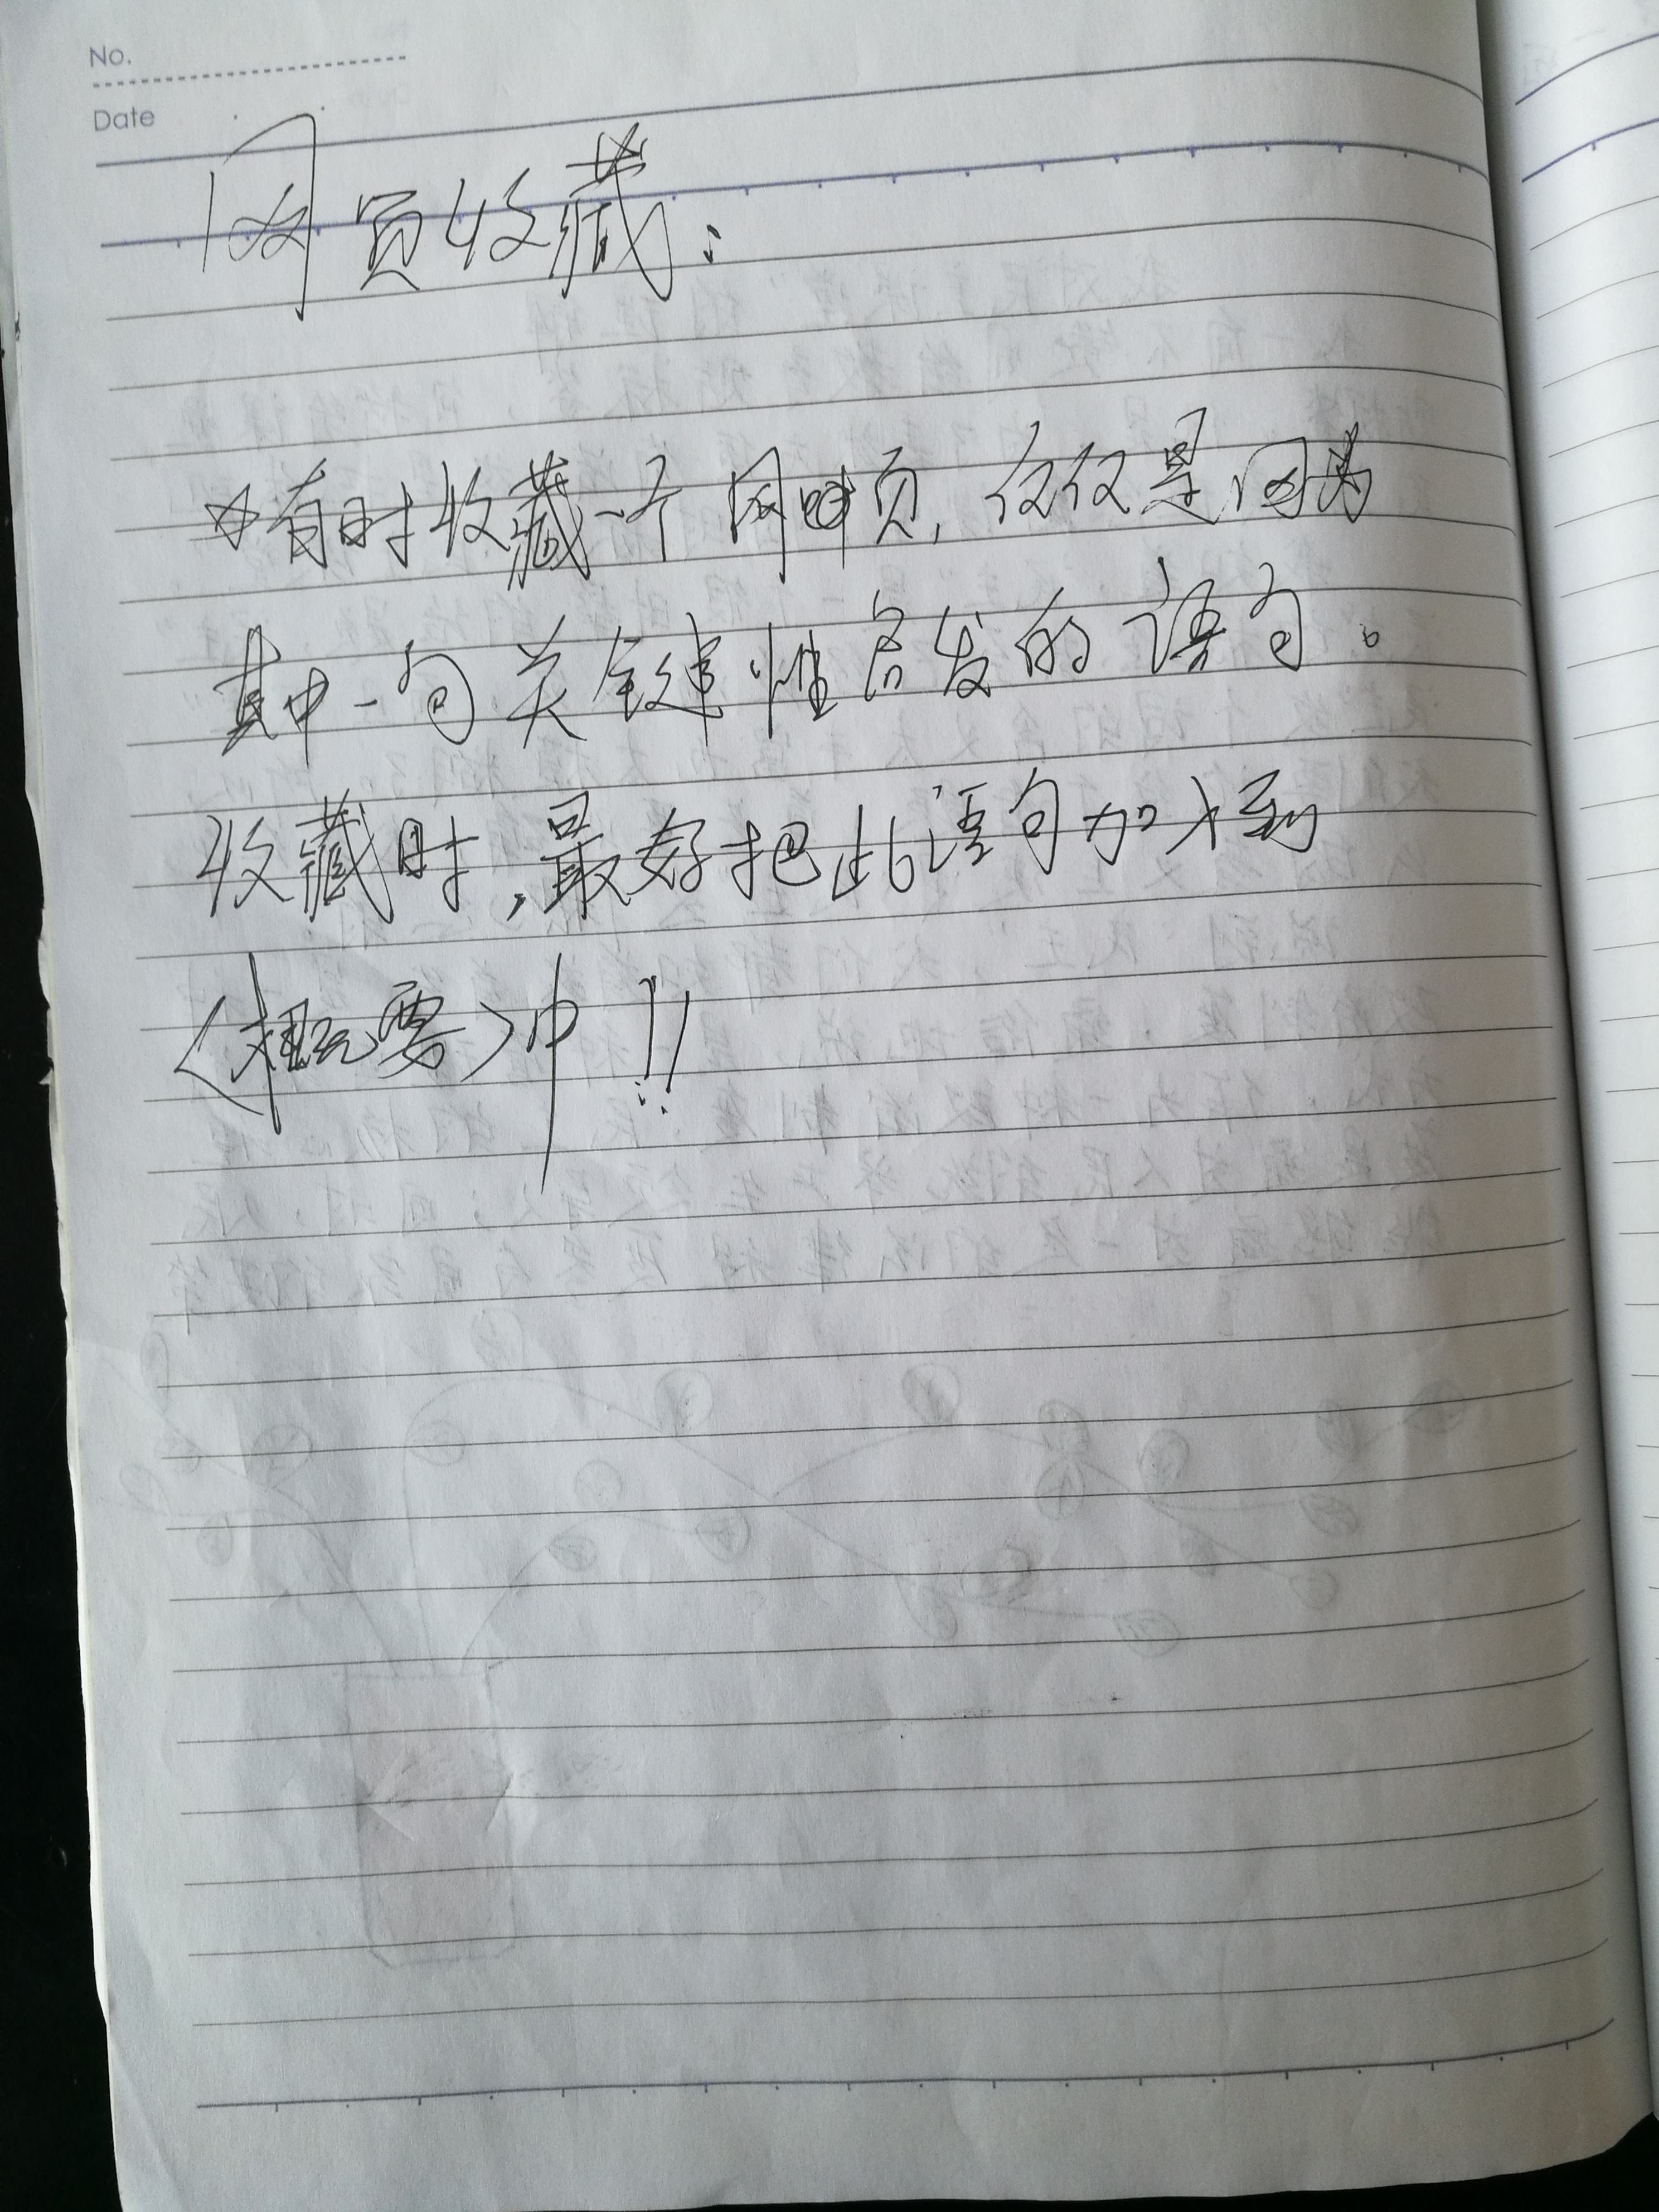 No.
Date
网页收藏：
☆有时收藏一个网页，仅仅是因为
其中一句关键性启发的语句。
收藏时，最好把此语句加入到
〈概要〉中！！